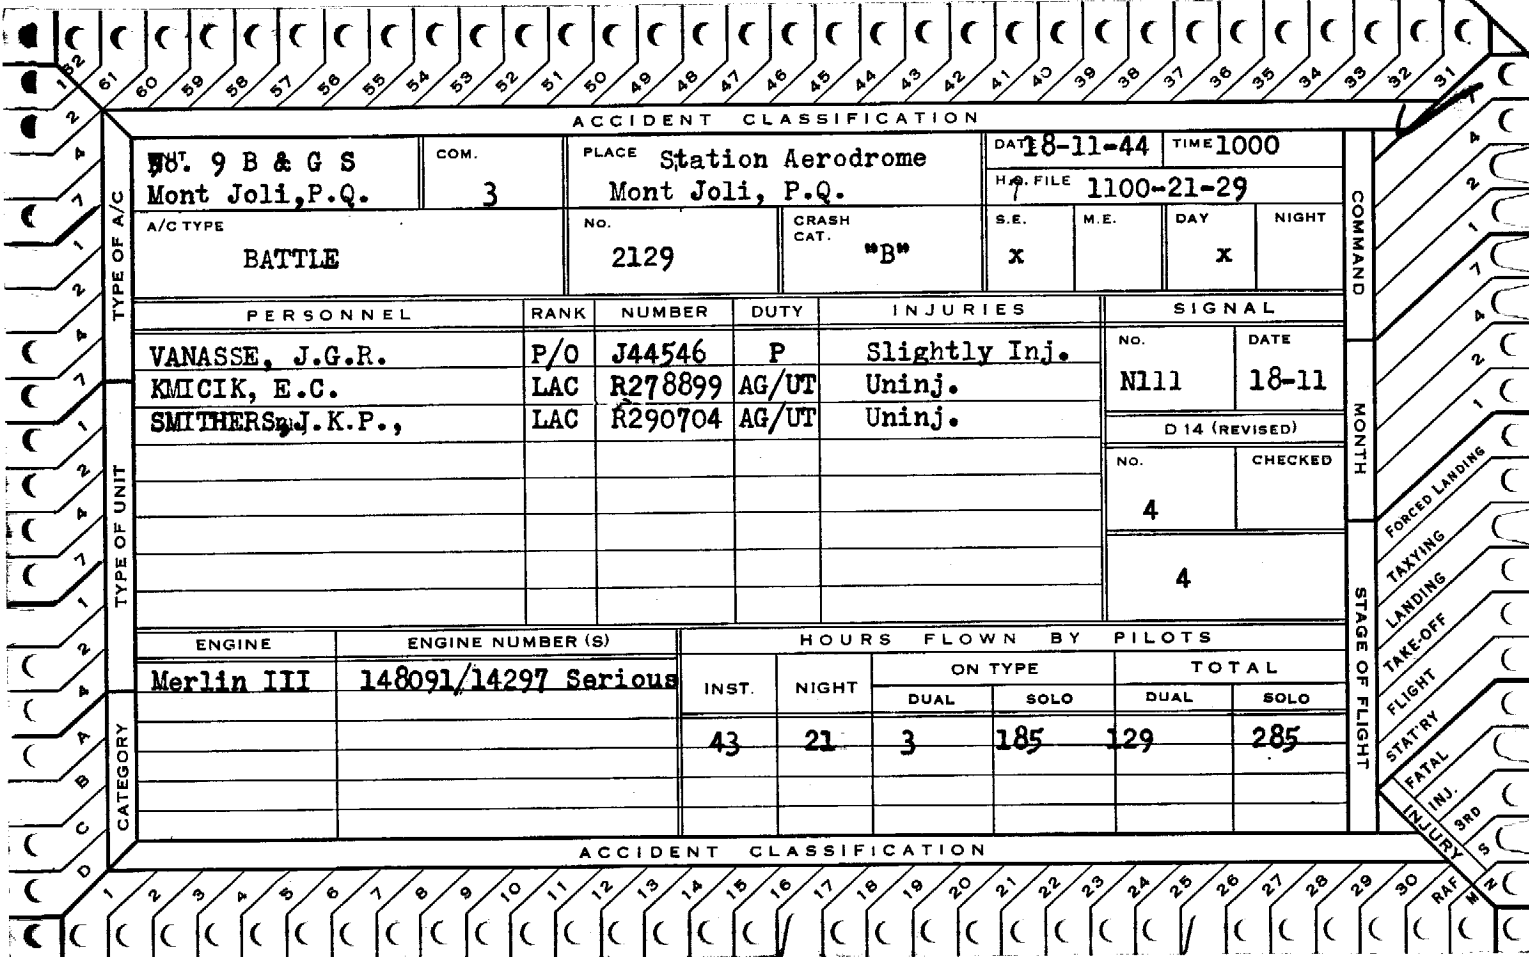 62 61 60 59 58 57 56 55 54 53 52 51 50 49 48 47 46 45 44 43 42 41 40 39 38 37 36 35 34 33 32 31
ACCIDENT CLASSIFICATION
UNIT No. 9 B & G S
Mont Joli, P.Q.
COM.
3
PLACE Station Aerodrome
Mont Joli, P.Q.
DATE 18-11-44 TIME 1000
H.Q. FILE 1100-21-29
A/C TYPE
BATTLE
No.
2129
CRASH CAT.
"B"
S.E. M.E. DAY NIGHT
x x
PERSONNEL RANK NUMBER DUTY INJURIES SIGNAL
VANASSE, J.G.R. P/O J44546 P Slightly Inj.
KMICIK, E.C. LAC R278899 AG/UT Uninj.
SMITHERS, J.K.P., LAC R290704 AG/UT Uninj.
No. DATE
N111 18-11
D 14 (REVISED)
No. CHECKED
4
4
ENGINE ENGINE NUMBER (S) HOURS FLOWN BY PILOTS
Merlin III 148091/14297 Serious
INST. NIGHT ON TYPE TOTAL
DUAL SOLO DUAL SOLO
43 21 3 185 129 285
ACCIDENT CLASSIFICATION
1 2 3 4 5 6 7 8 9 10 11 12 13 14 15 16 17 18 19 20 21 22 23 24 25 26 27 28 29 30 RAF M N
TYPE OF A/C
1 2 4 7 1 2 4 7
TYPE OF UNIT
1 2 4 7 1 2 4
CATEGORY
A B C D
COMMAND
1 4 2 1 7 4
MONTH
2 1
STAGE OF FLIGHT
FORCED LANDING
TAXYING
LANDING
TAKE-OFF
FLIGHT
STAT'RY
FATAL
INJ.
3RD
S
INJURY